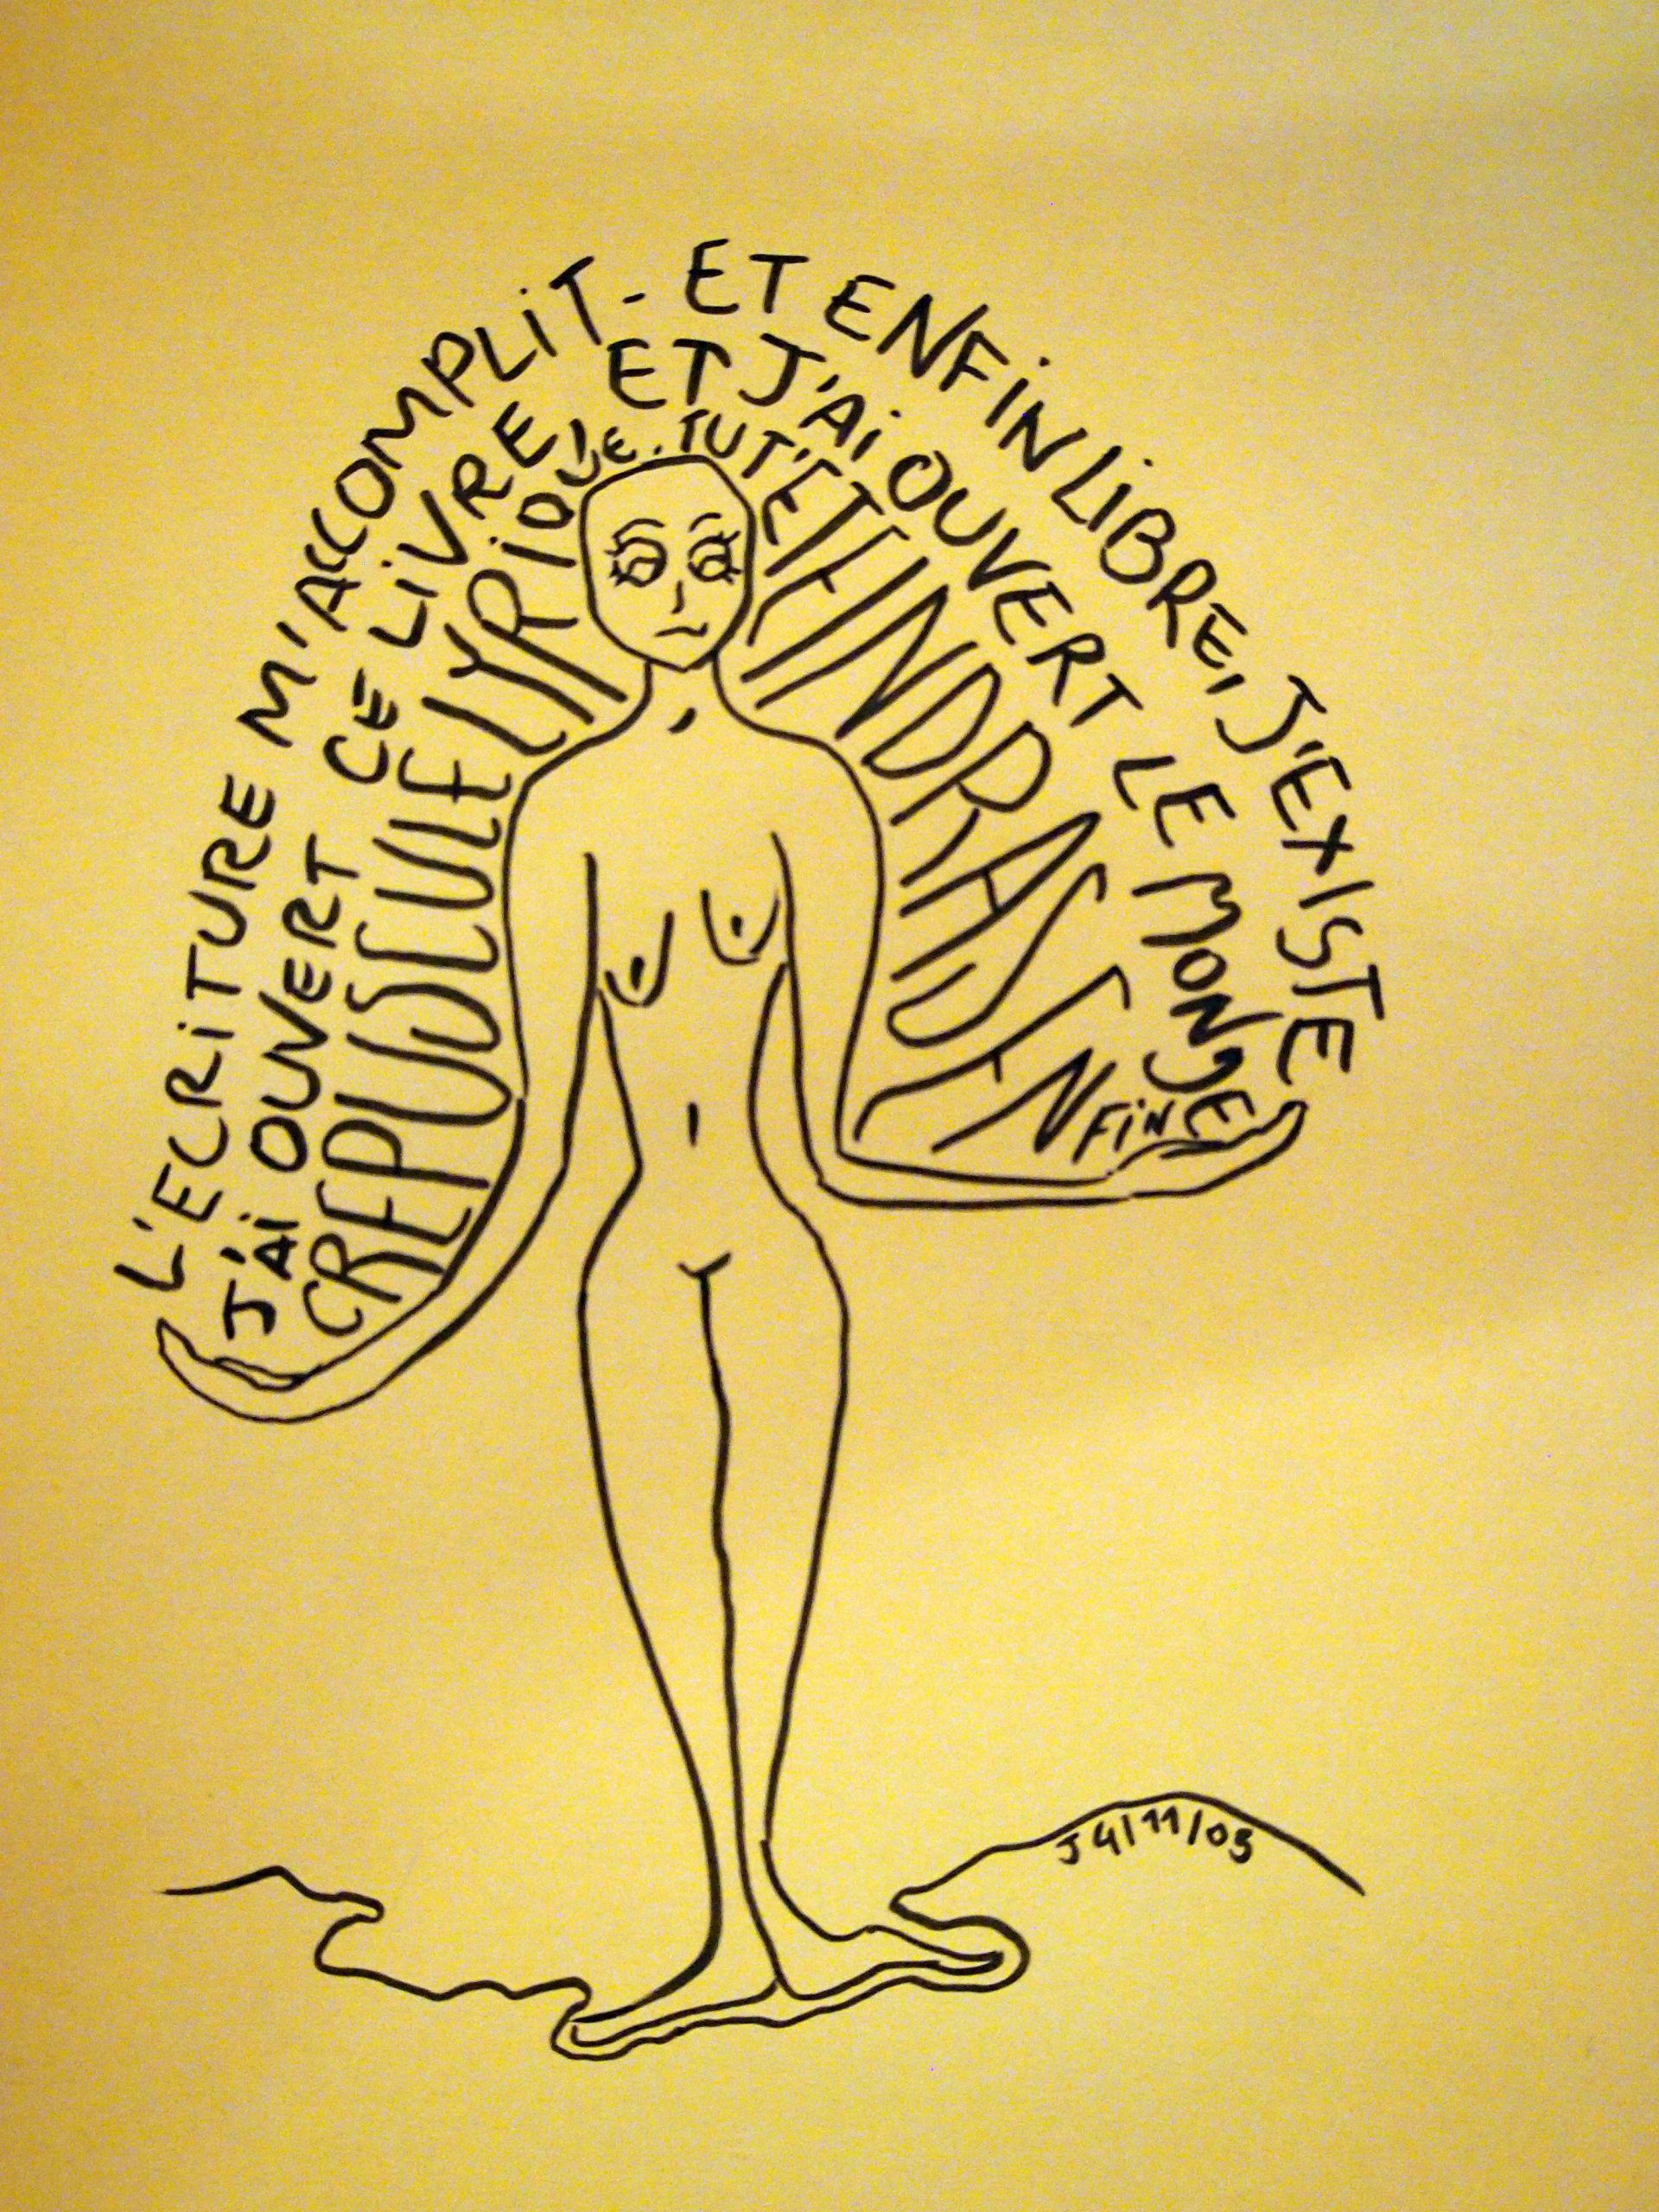 L'ECRiTURE M'ACCOMPLiT - ET ENFiN LiBRE, J'EXiSTE
J'Ai OUVERT CE LiVRE, ET J'Ai OUVERT LE MONDE
CREPUSCULE LYRiQUE. TU T'ETEINDRAS ENFiN
J 4/11/05